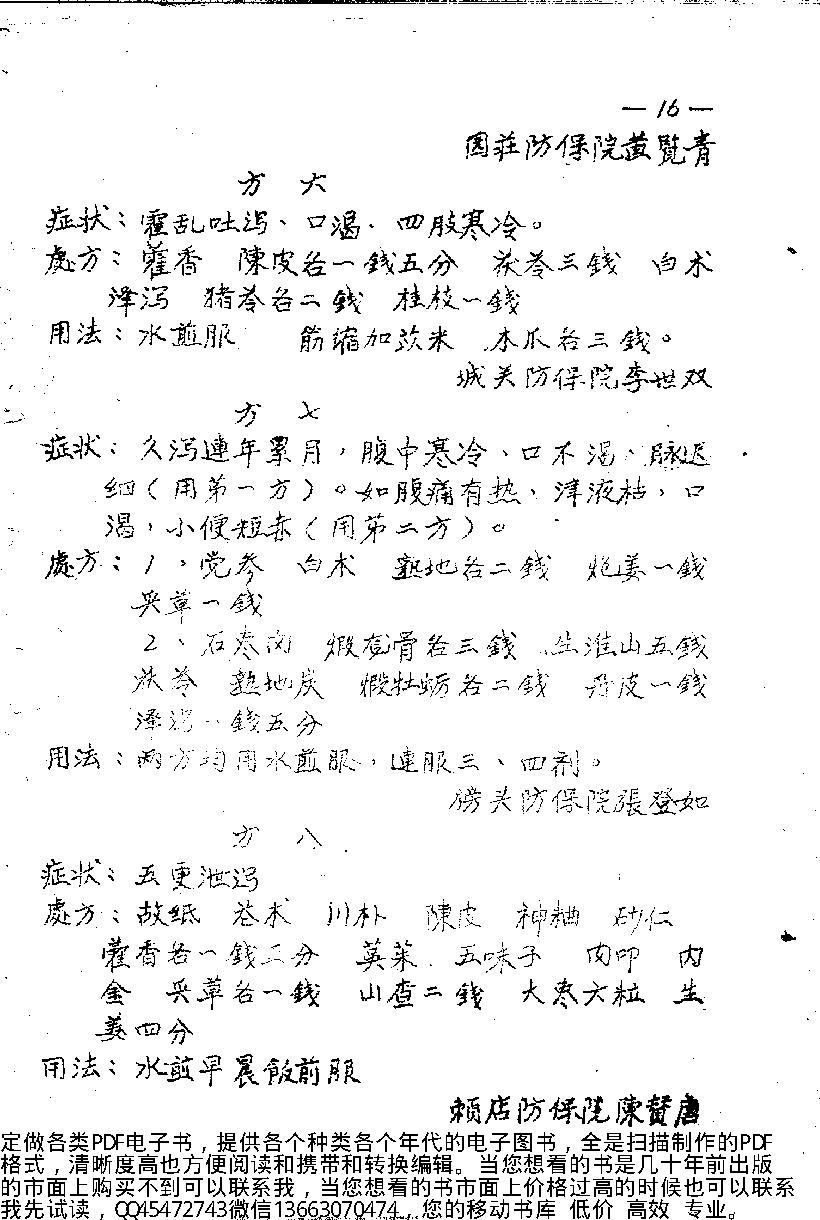 —16—
园莊防保院黄覧青
方 六
症状：霍乱吐泻、口渴、四肢寒冷。
處方：藿香 陳皮各一錢五分 茯苓三錢 白术
泽泻 猪苓各二錢 桂枝一錢
用法：水煎服 筋缩加苡米 木瓜各三錢。
城关防保院李世双
方 七
症状：久泻連年累月，腹中寒冷、口不渴、脉迟
细（用第一方）。如腹痛有热、津液枯，口
渴，小便短赤（用第二方）。
處方：1，党参 白术 熟地各二錢 炮姜一錢
炙草一錢
2、石枣肉 煅龙骨各三錢 生淮山五錢
茯苓 熟地炭 煅牡蛎各二錢 丹皮一錢
泽泻一錢五分
用法：两方均用水煎服，連服三、四剂。
榜头防保院張登如
方 八
症状：五更泄泻
處方：故纸 苍术 川朴 陳皮 神粬 砂仁
藿香各一錢二分 萸茱 五味子 肉叩 内
金 炙草各一錢 山查二錢 大枣六粒 生
姜四分
用法：水煎早晨飯前服
赖店防保院陳賛唐
定做各类PDF电子书，提供各个种类各个年代的电子图书，全是扫描制作的PDF
格式，清晰度高也方便阅读和携带和转换编辑。当您想看的书是几十年前出版
的市面上购买不到可以联系我，当您想看的书市面上价格过高的时候也可以联系
我先试读，QQ45472743微信13663070474，您的移动书库 低价 高效 专业。